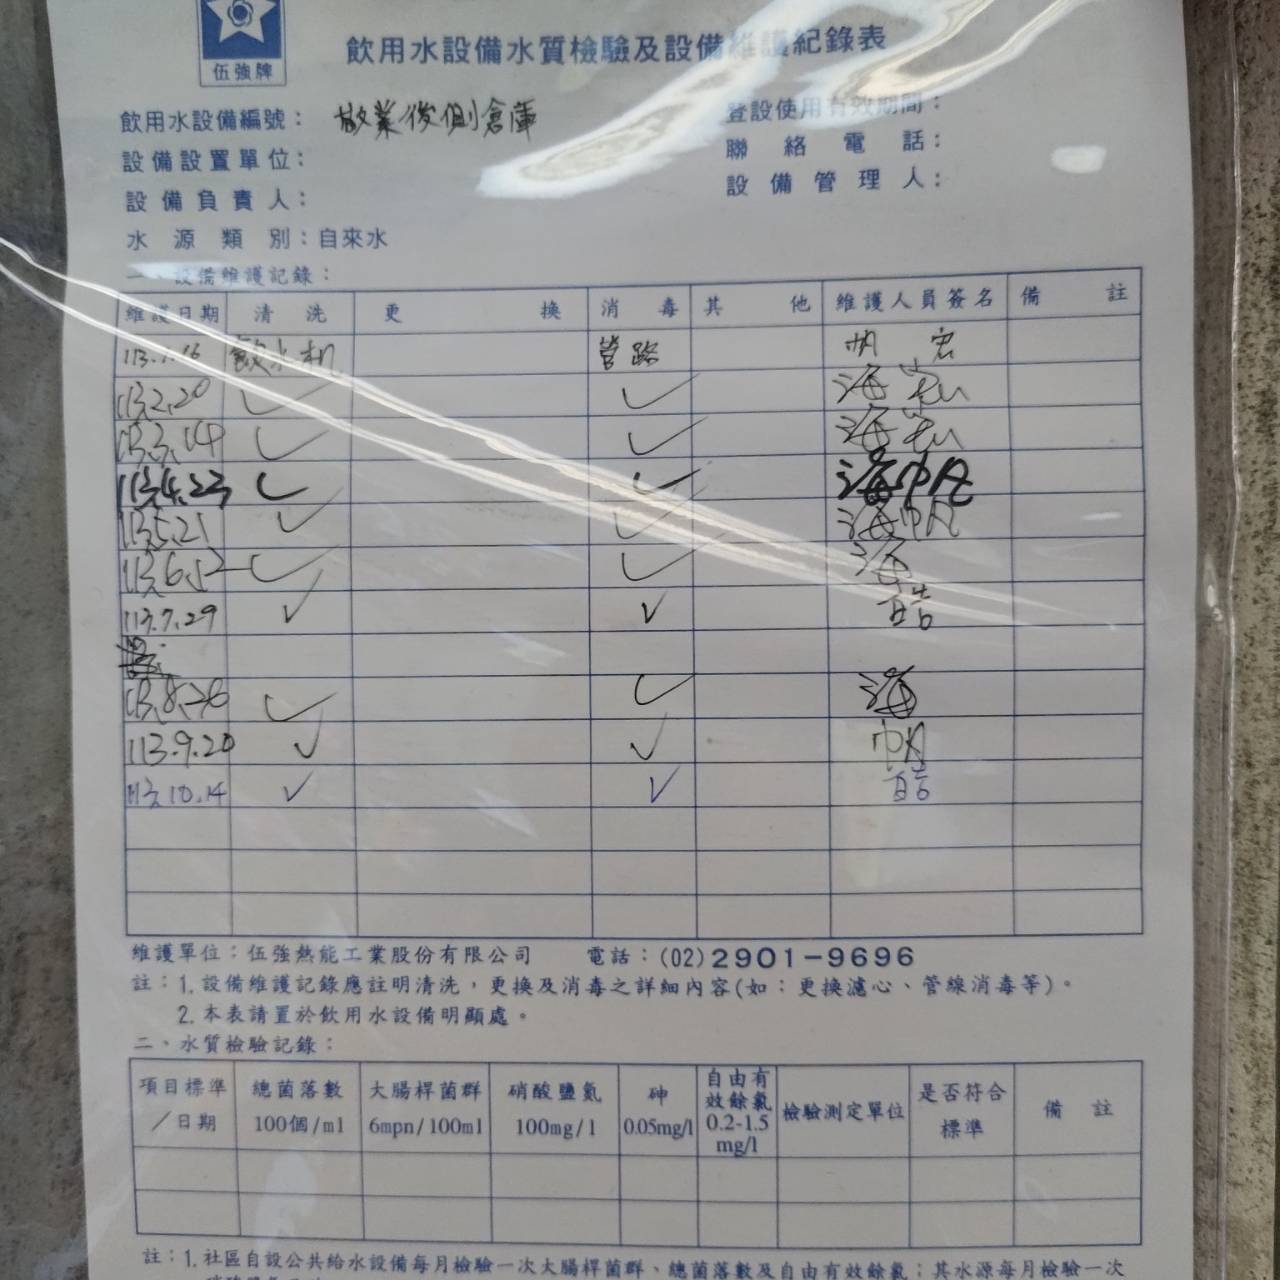 伍強牌
飲用水設備水質檢驗及設備維護紀錄表
飲用水設備編號：敬業後側倉庫
登設使用有效期間：
設備設置單位：
聯絡電話：
設備負責人：
設備管理人：
水源類別：自來水
一、設備維護記錄：
維護日期 清洗 更換 消毒 其他 維護人員簽名 備註
113.1.16 飲水机 管路 帆宏
113.2.20 ✓ ✓ 海
113.3.14 ✓ ✓ 海
113.4.23 ✓ ✓ 海帆
113.5.21 ✓ ✓ 海帆
113.6.12 ✓ ✓ 海
113.7.29 ✓ ✓
113.8.20 ✓ ✓ 海
113.9.20 ✓ ✓ 帆
113.10.14 ✓ ✓
維護單位：伍強熱能工業股份有限公司 電話：(02)2901-9696
註：1.設備維護記錄應註明清洗，更換及消毒之詳細內容(如：更換濾心、管線消毒等)。
2.本表請置於飲用水設備明顯處。
二、水質檢驗記錄：
項目標準／日期 總菌落數100個/ml 大腸桿菌群6mpn/100ml 硝酸鹽氮100mg/l 砷0.05mg/l 自由有效餘氯0.2-1.5mg/l 檢驗測定單位 是否符合標準 備註
註：1.社區自設公共給水設備每月檢驗一次大腸桿菌群、總菌落數及自由有效餘氯；其水源每月檢驗一次